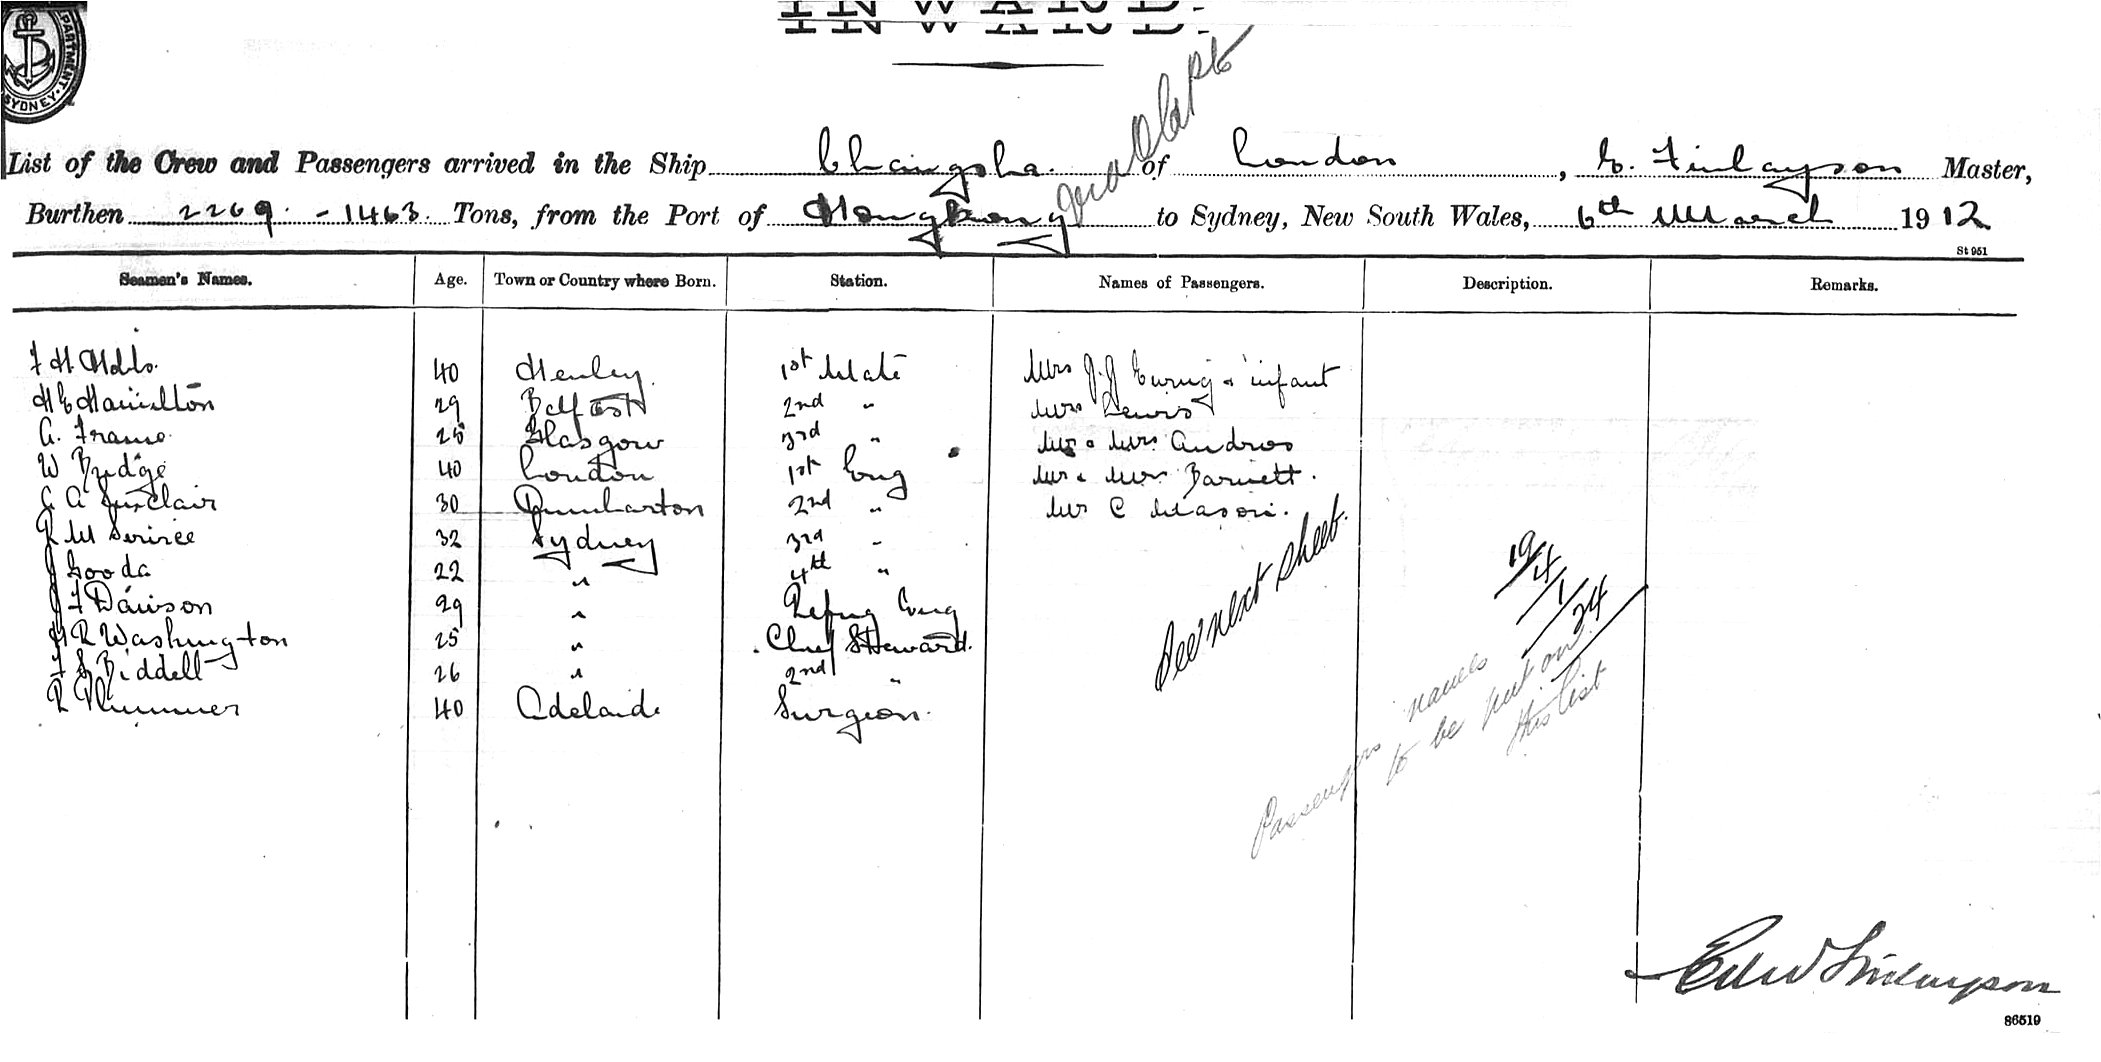 INWARD.
PARTMENT
SYDNEY
List of the Crew and Passengers arrived in the Ship Changsha. of London, E. Finlayson Master,
via Old Pts
Burthen 2269 - 1463 Tons, from the Port of Hongkong to Sydney, New South Wales, 6th March 1912
St 951
Seamen's Names. Age. Town or Country where Born. Station. Names of Passengers. Description. Remarks.
F H Hobbs. 40 Henley. 1st Mate Mrs J. J. Ewing & infant
H E Hamilton 29 Belfast 2nd " Mrs Lewis
A. Frame. 25 Glasgow 3rd " Mr & Mrs Andros
W Budge 40 London 1st Eng Mr & Mrs Barnett.
A A Sinclair 30 Dumbarton 2nd " Mr C Mason.
R M Service 32 Sydney 3rd "
J Gooda 22 " 4th "
J F Dawson 29 " Refrig Eng
H R Washington 25 " Chief Steward.
F S Biddell 26 " 2nd "
R Plummer 40 Adelaide Surgeon.
See next sheet.
19/4/1/34
Passengers names
to be put on
this list
Edw Finlayson
86519